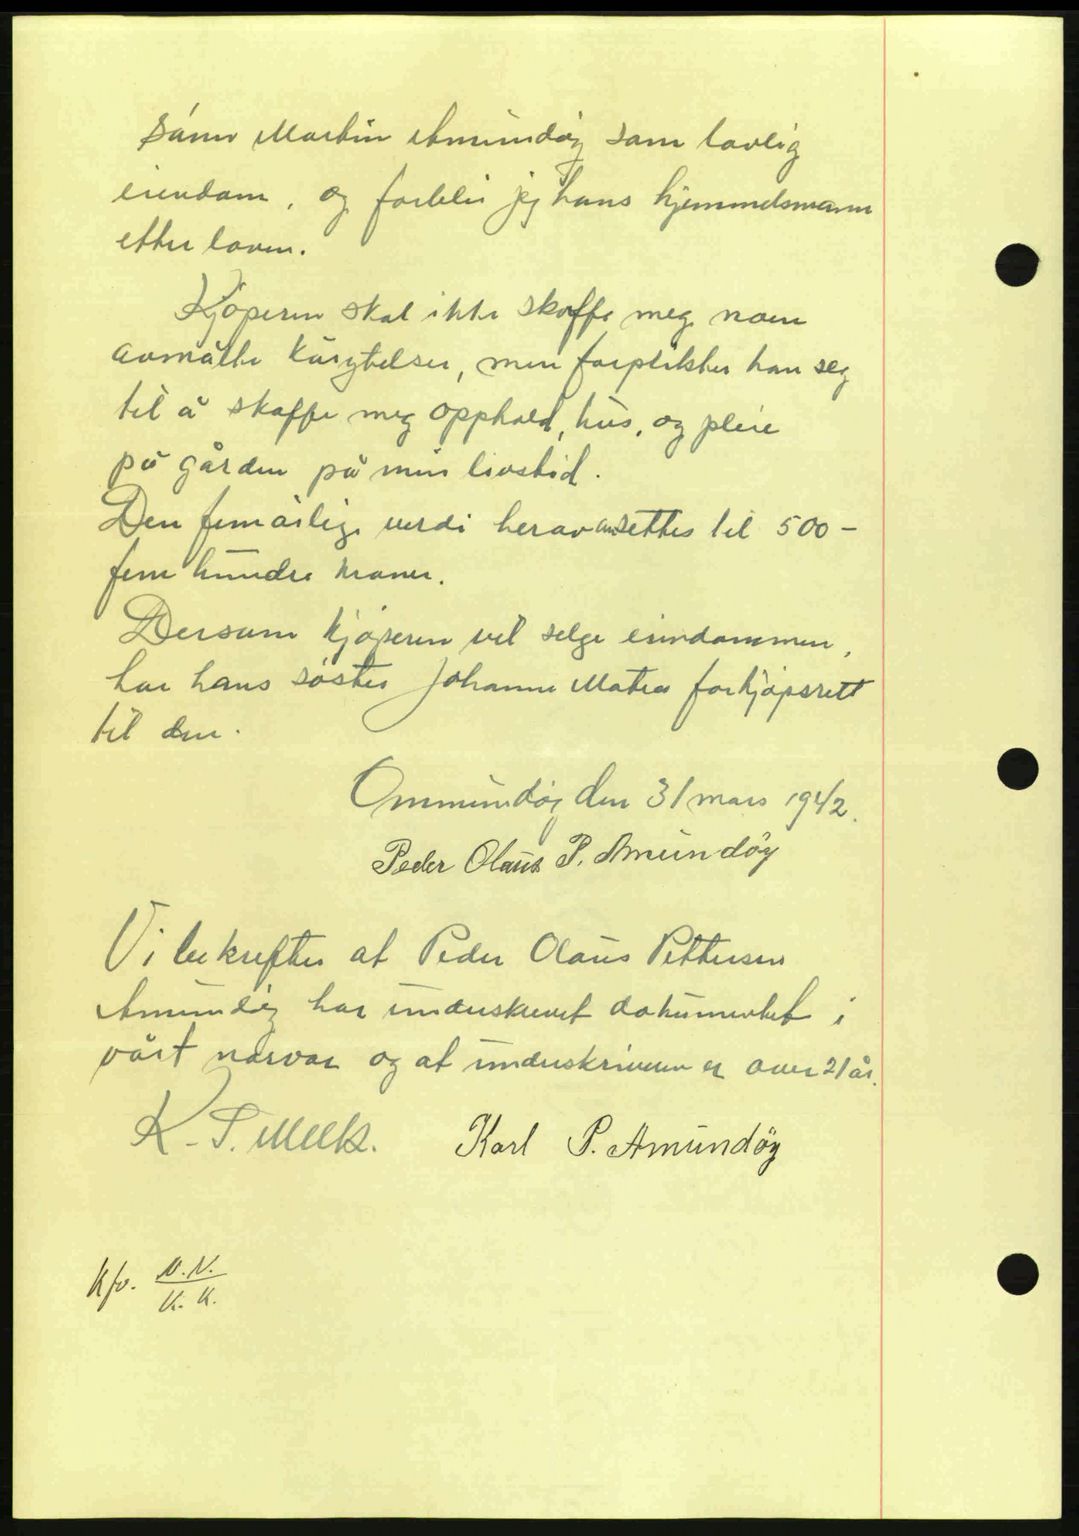 sønn Martin Amundøy som lovlig
eiendom, og forblir jeg hans hjemmelsmann
etter loven.
Kjøperen skal ikke skaffe meg noen
avmålte kårytelser, men forplikter han seg
til å skaffe meg opphold, hus, og pleie
på gården på min livstid.
Den femårlige verdi herav ansettes til 500 –
fem hundre kroner.
Dersom kjøperen vil selge eiendommen,
har hans søster Johanne Matea forkjøpsrett
til den.
Ommundøy den 31 mars 1942.
Peder Olaus P. Amundøy
Vi bekrefter at Peder Olaus Pettersen
Amundøy har underskrevet dokumentet i
vårt nærvær og at underskriveren er over 21 år.
K. T. Meek.  Karl P. Amundøy
Kfr. N.N.
K.K.